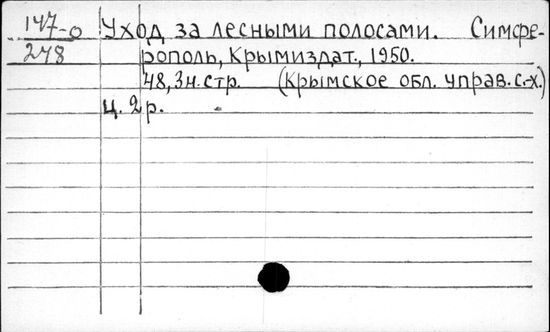 147-0 Уход за лесными полосами. Симфе-
248 рополь, Крымиздат., 1950.
48, 3н. стр. (Крымское обл. управ. с.-х.)
ц. 2 р.